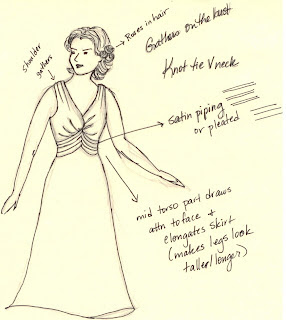 Roses in hair
Gathers on the bust
Knot tie V neck
shoulder
gathers
satin piping
or pleated
mid torso part draws
attn to face +
elongates skirt
(makes legs look
taller/longer)